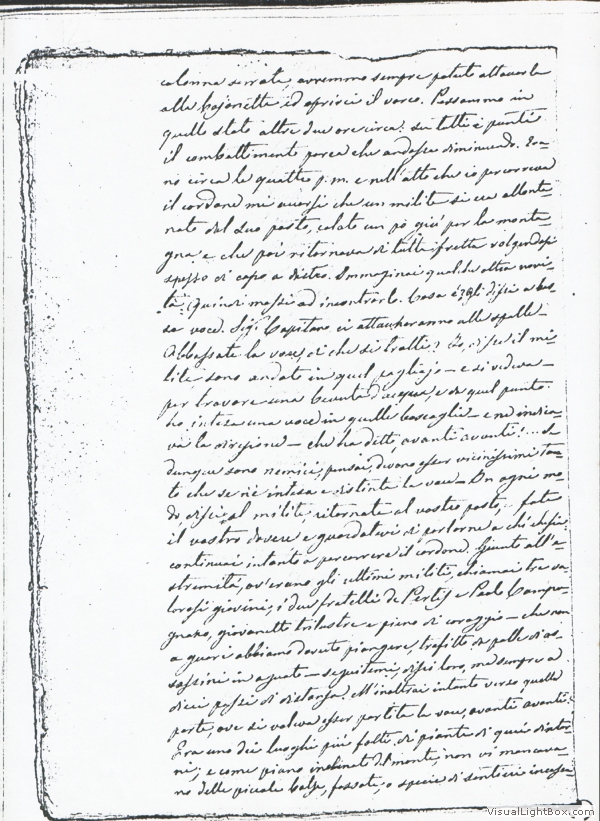 colonna serrata, avremmo sempre potuto attaccarla
alla bajonetta ed aprirci il varco. Passammo in
quello stato altre due ore circa: su tutti i punti
il combattimento parea che andasse diminuendo. Era-
no circa le quattro p.m. e nell'atto che io percorreva
il cordone mi accorsi che un milite si era allonta-
nato dal suo posto, calato un pò giù per la monta-
gna e che poi ritornava di tutta fretta volgendosi
spesso di capo a dietro. Immaginai qualche altra novi-
tà: quindi mossi ad incontrarlo. Cosa é? gli dissi a bas-
sa voce. Sigr. Capitano ci attaccheranno alle spalle -
Abbassate la voce, di che si tratta? Io, disse il mi-
lite sono andato in quel pagliajo - e si vedeva -
per trovare una bevuta d'acqua, e da quel punto
ho intesa una voce in quelle boscaglie - e ne indica-
va la direzione - che ha detto, avanti avanti!... Se
dunque sono nemici, pensai, devono esser vicinissimi tan-
to che se n'è intesa e distinta la voce - In ogni mo-
do dissi al milite, ritornate al vostro posto, fate
il vostro dovere e guardatevi di parlarne a chi chesia:
continuai intanto a percorrere il cordone. Giunto all'e-
stremità, ov'erano gli ultimi militi, chiamai tre va-
lorosi giovini; i due fratelli de Pertis e Paolo Campa-
gnano, giovanetto trilustre e pieno di coraggio - che non
a guari abbiamo dovuto piangere, trafitto da palle di as-
sassini in aguato - seguitemi, dissi loro, ma sempre a
dieci passi di distanza. M'inoltrai intanto verso quella
parte, ove si voleva esser partita la voce, avanti avanti.
Era uno dei luoghi più folti di piante di quei dintor-
ni; e come piano inclinato del monte, non vi mancava-
no delle piccole balze, fossate, o specie di sentieri incassa-
VisualLightBox.com